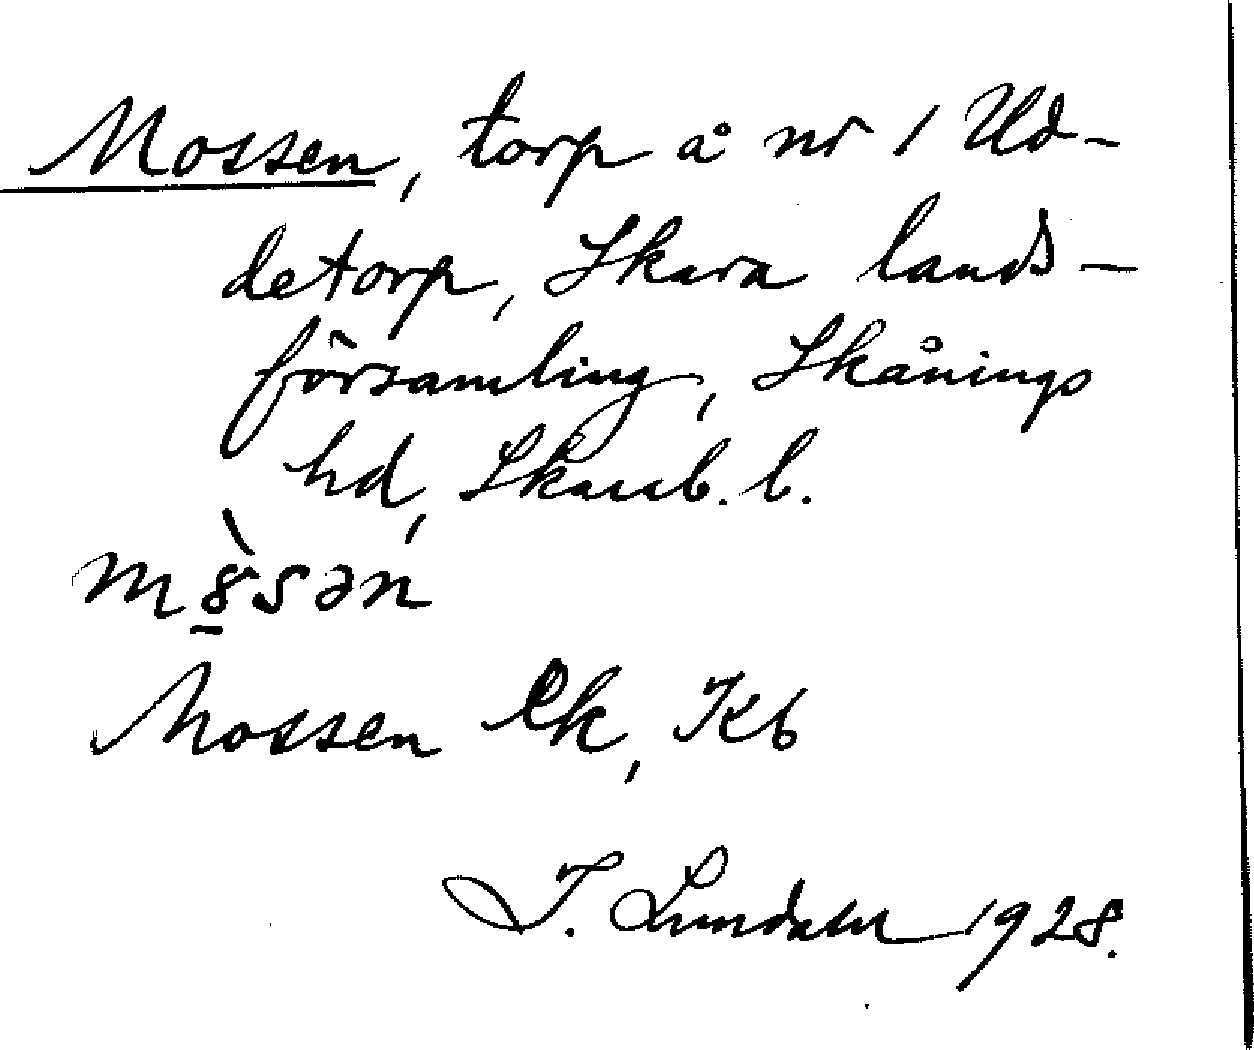 Mossen, torp å nr 1 Ud-
detorp, Skara lands-
församling, Skånings
hd, Skarab. l.
m8̱̀sən
Mossen Ek, Kb
I. Lundahl 1928.